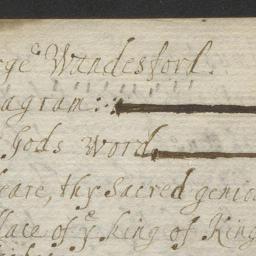 rge Wandesford.
agram:
Gods Word
eare, thy Sacred genio
lace of yͤ king of King